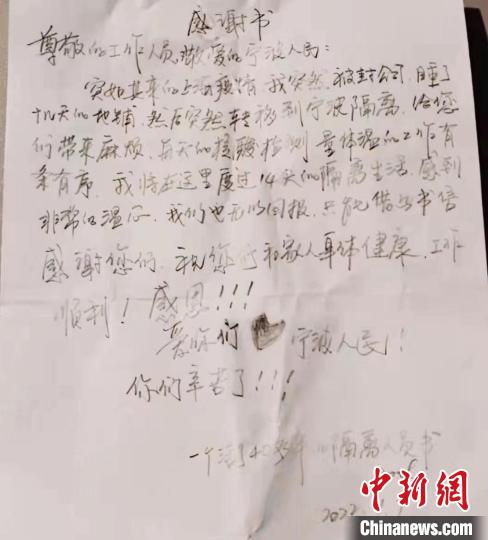 感谢书
尊敬的工作人员,敬爱的宁波人民:
突如其来的上海疫情,我突然被封公司,睡了
十几天的地铺,然后突然转移到宁波隔离,给您
们带来麻烦,每天的核酸检测 量体温的工作有
条有序,我将在这里度过14天的隔离生活,感到
非常的温心,我们也无以回报,只能借此书信
感谢您们,祝您们和家人身体健康,工作
顺利!感恩!!!
爱你们 宁波人民!
你们辛苦了!!!
一个 40 隔离人员书
2022
中新网
Chinanews.com